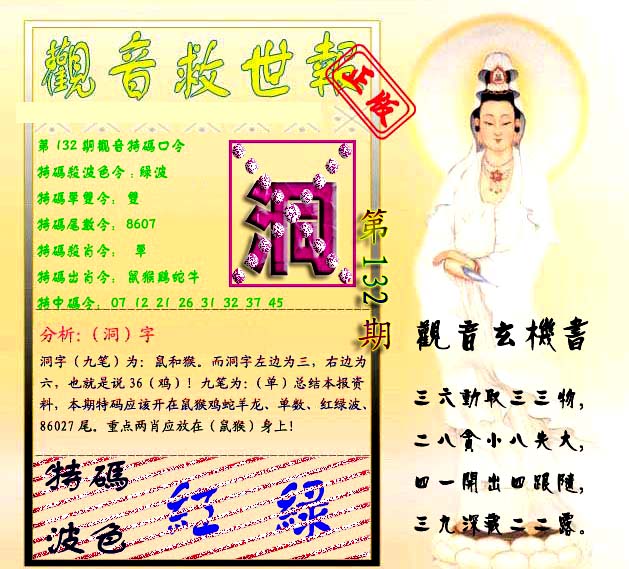 觀音救世報
正版
第132期觀音特碼口令
特碼殺波色令:綠波
特碼單雙令: 雙
特碼尾數令: 8607
特碼殺肖令: 單
特碼出肖令: 鼠猴鷄蛇牛
特中碼令: 07 12 21 26 31 32 37 45
洞
第132期
分析:（洞）字
洞字（九笔）为：鼠和猴。而洞字左边为三，右边为
六，也就是说36（鸡）！九笔为：（单）总结本报资
料，本期特码应该开在鼠猴鸡蛇羊龙、单数、红绿波、
86027尾。重点两肖应放在（鼠猴）身上!
特碼
波色
紅 綠
觀音玄機書
三六動取三三物,
二八貪小八失大,
四一開出四跟隨,
三九深藏二二露。